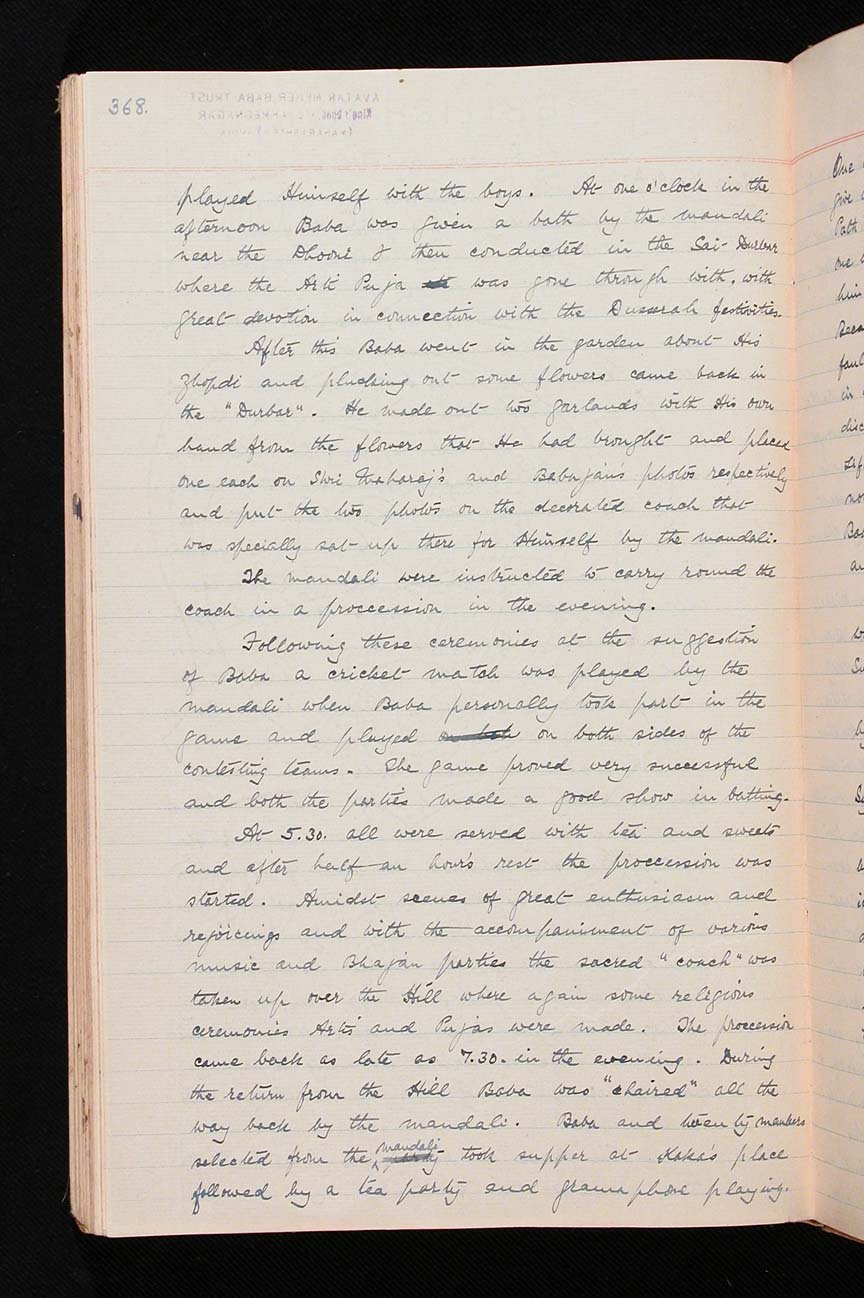 368.
AVATAR MEHER BABA TRUST
King's Road, AHMEDNAGAR
played Himself with the boys. At one o'clock in the
afternoon Baba was given a bath by the mandali
near the Dhooni & then conducted in the Sai-Durbar
where the Arti Puja was gone through with, with
great devotion in connection with the Dussrah festivities.
After this Baba went in the garden about His
Zhopdi and plucking out some flowers came back in
the "Durbar". He made out two garlands with His own
hand from the flowers that He had brought and placed
one each on Shri Maharaj's and Babajan's photos respectively
and put the two photos on the decorated coach that
was specially sat up there for Himself by the mandali.
The mandali were instructed to carry round the
coach in a proccession in the evening.
Following these ceremonies at the suggestion
of Baba a cricket match was played by the
mandali when Baba personally took part in the
game and played on both sides of the
contesting teams. The game proved very successful
and both the parties made a good show in batting.
At 5.30. all were served with tea and sweets
and after half an hour's rest the proccession was
started. Amidst scenes of great enthusiasm and
rejoicings and with the accompaniment of various
music and Bhajan parties the sacred "coach" was
taken up over the Hill where again some religious
ceremonies Artis and Pujas were made. The proccession
came back as late as 7.30. in the evening. During
the return from the Hill Baba was "chaired" all the
way back by the mandali. Baba and twenty members
selected from the mandali took supper at Kaka's place
followed by a tea party and gramaphone playing.